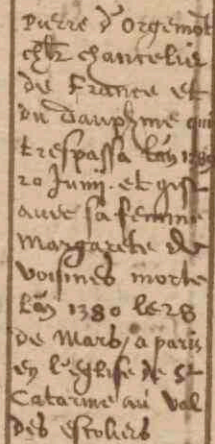 pierre d'Orgemōt
chlr chancelier
de France et
du dauphine qui
trespassa lan 1389
20 Juing. et gist
avec sa femme
Margarete de
voisines morte
lan 1380 le 28
de Mars, a paris
en l'eglise de St
Catarine au val
des escoliers